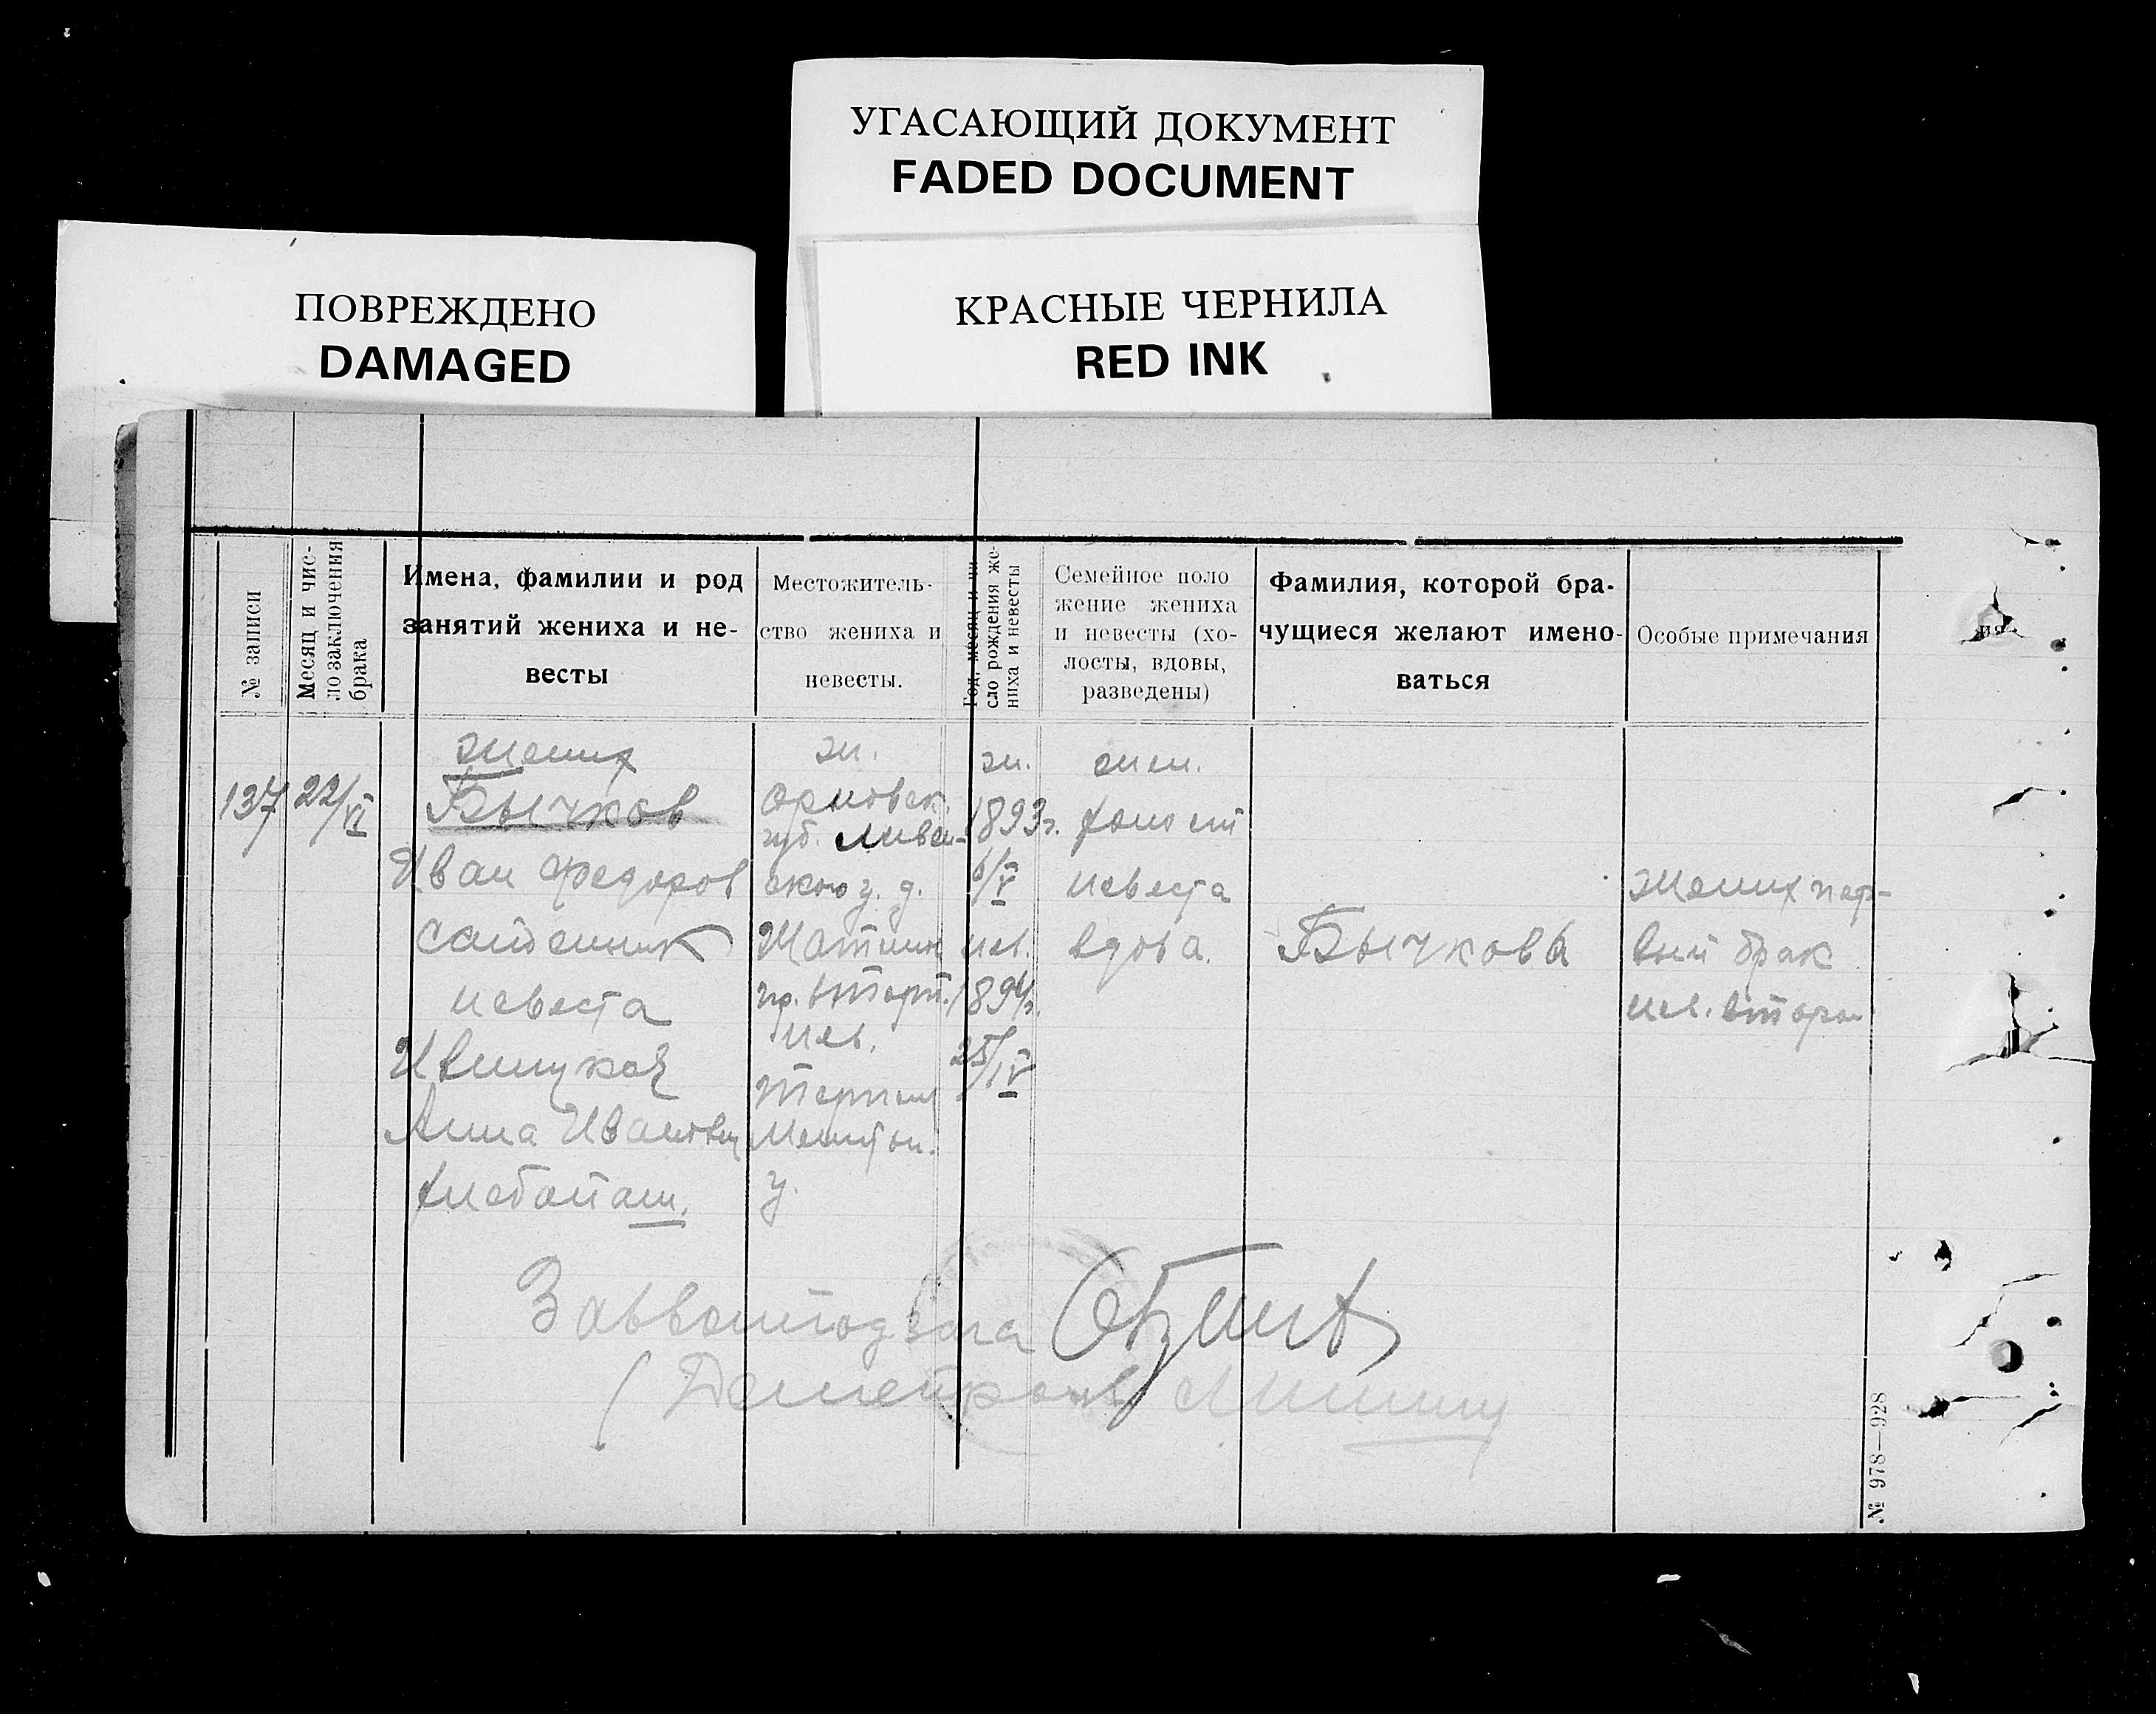 УГАСАЮЩИЙ ДОКУМЕНТ
FADED DOCUMENT
ПОВРЕЖДЕНО
DAMAGED
КРАСНЫЕ ЧЕРНИЛА
RED INK
№ записи
Месяц и чис-
ло заключения
брака
Имена, фамилии и род
занятий жениха и не-
весты
Местожитель-
ство жениха и
невесты.
Год, месяц и чи
сло рождения же-
ниха и невесты
Семейное поло
жение жениха
и невесты (хо-
лосты, вдовы,
разведены)
Фамилия, которой бра-
чущиеся желают имено-
ваться
Особые примечания
137
22/VI
жених
Бычков
Иван Федоров
невеста
Анна Ивановн
хлебопаш.
ж.
Орловск.
губ. Ливен-
ского у. д.
нев.
у.
ж.
1893г.
6/V
нев.
1894г.
25/IV
жен.
холост
невеста
вдова.
Бычкова
жених пер-
вый брак
нев. второй
№ 978—928